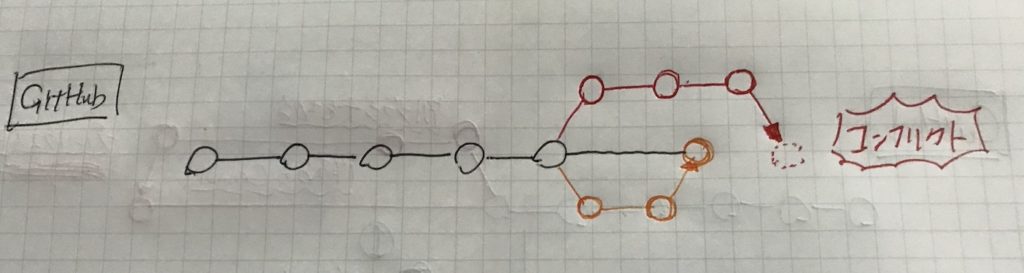 GitHub
コンフリクト